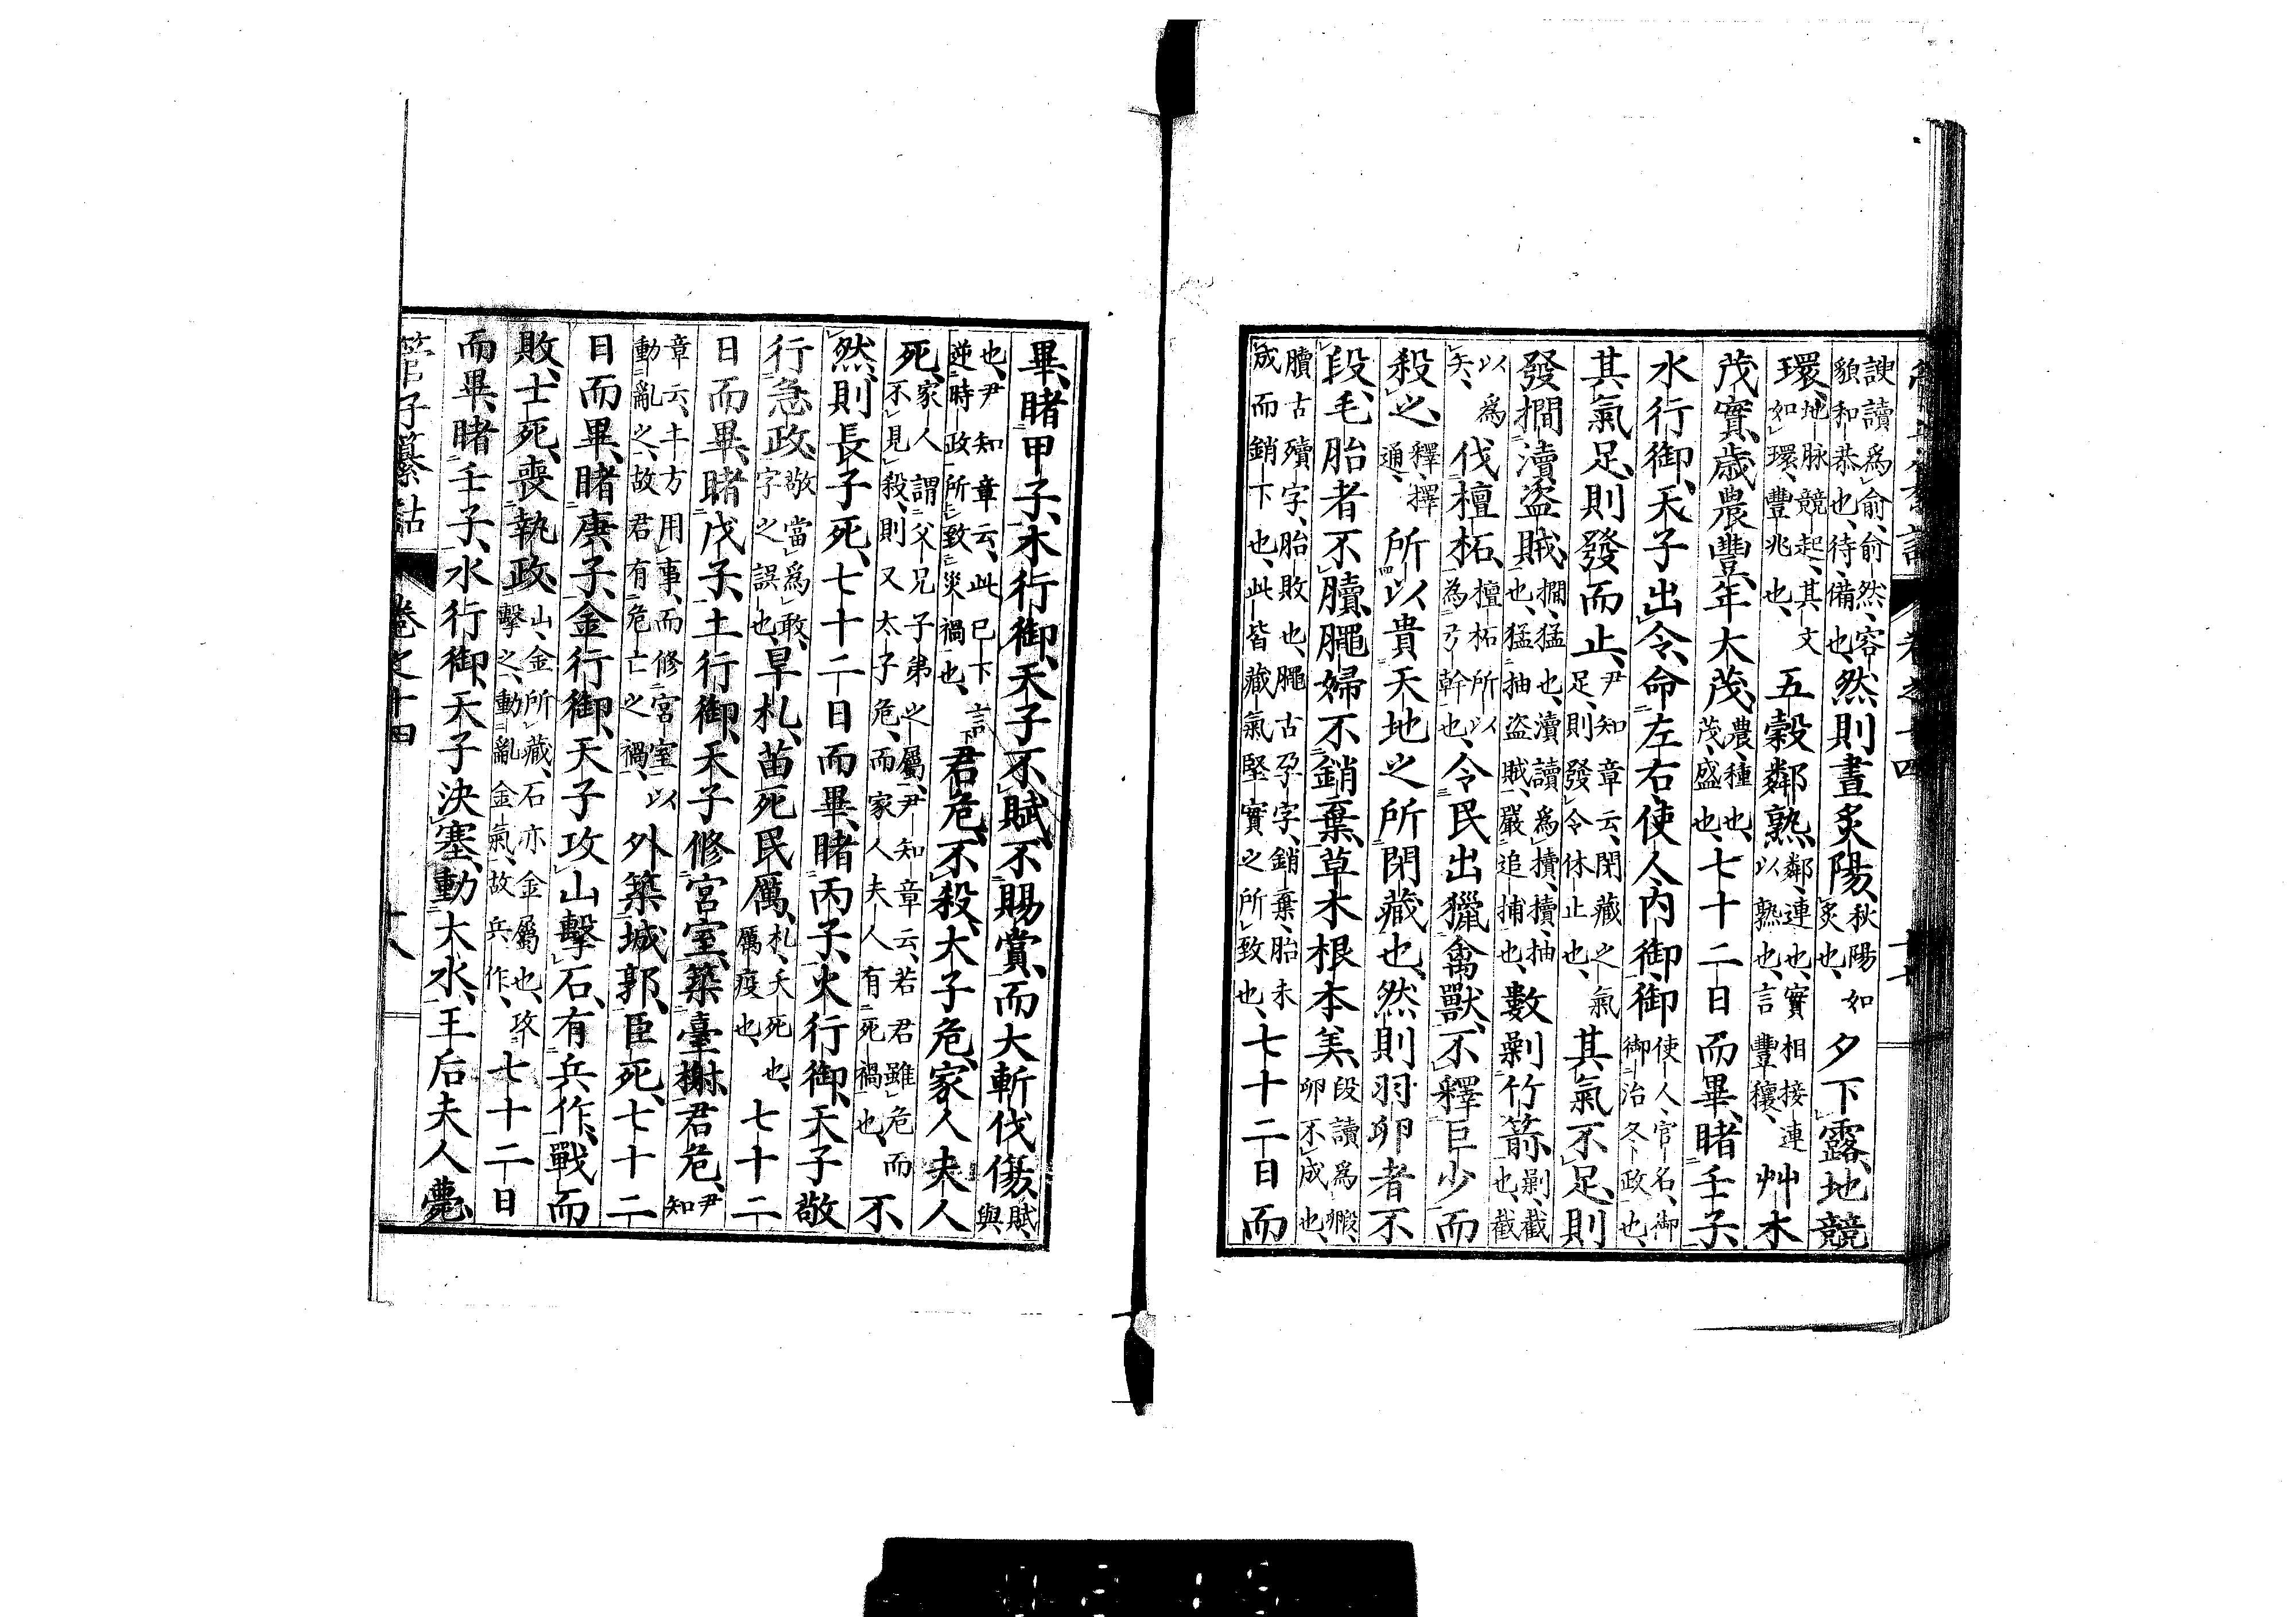 諛讀爲俞、俞然、容貌和恭也、待、備也、然則晝炙陽、秋陽如炙也、夕下露、地競
環、地脉競起、其文如環、豐兆也、五穀鄰熟、鄰、連也、實相接連以熟也、言豐穰、艸木
茂實、歲農豐、年大茂、農、種也、茂、盛也、七十二日而畢、睹壬子、
水行御、天子出令、命左右使人內御、御使人、官名、御御治冬政也、
其氣足、則發而止、尹知章云、閉藏之氣足、則發令休止也、其氣不足、則
發撊瀆盜賊、撊、猛也、瀆讀爲讟、讟、抽也、猛抽盜賊、嚴追捕也、數剿竹箭、剿、截也、截
以爲矢、伐檀柘、檀柘所以爲弓幹也、令民出獵禽獸、不釋巨少而
殺之、釋、擇通、所以貴天地之所閉藏也、然則羽卵者不
段、毛胎者不贕、䐓婦不銷棄、草木根本美、段讀爲毈、卵不成也、
贕古殰字、胎敗也、䐓古孕字、銷棄、胎未成而銷下也、此皆藏氣堅實之所致也、七十二日而
畢、睹甲子、木行御、天子不賦、不賜賞、而大斬伐傷、賦、與
也、尹知章云、此已下言逆時政所致災禍也、君危、不殺、太子危、家人夫人
死、家人謂父兄子弟之屬、尹知章云、若君雖危而不見殺、則又太子危、而家人夫人有死禍也、不
然、則長子死、七十二日而畢、睹丙子、火行御、天子敬
行急政、敬當爲敢、字之誤也、旱札、苗死民厲、札、夭死也、厲疫也、七十二
日而畢、睹戊子、土行御、天子修宮室、築臺榭、君危、尹知
章云、土方用事、而修宮室以動亂之、故君有危亡之禍、外築城郭、臣死、七十二
日而畢、睹庚子、金行御、天子攻山擊石、有兵作、戰而
敗、士死、喪執政、山、金所藏、石亦金屬也、攻擊之、動亂金氣、故兵作、七十二日
而畢、睹壬子、水行御、天子決塞、動大水、王后夫人薨、
管子纂詁 卷之十四 十八